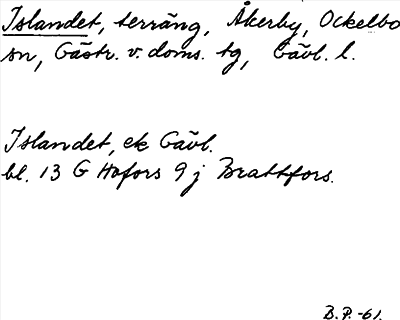 Islandet, terräng, Åkerby, Ockelbo
sn, Gästr. v. doms. tg, Gävl. l.
Islandet, ek Gävl.
bl. 13 G Hofors 9 j Brattfors.
B.P.-61.